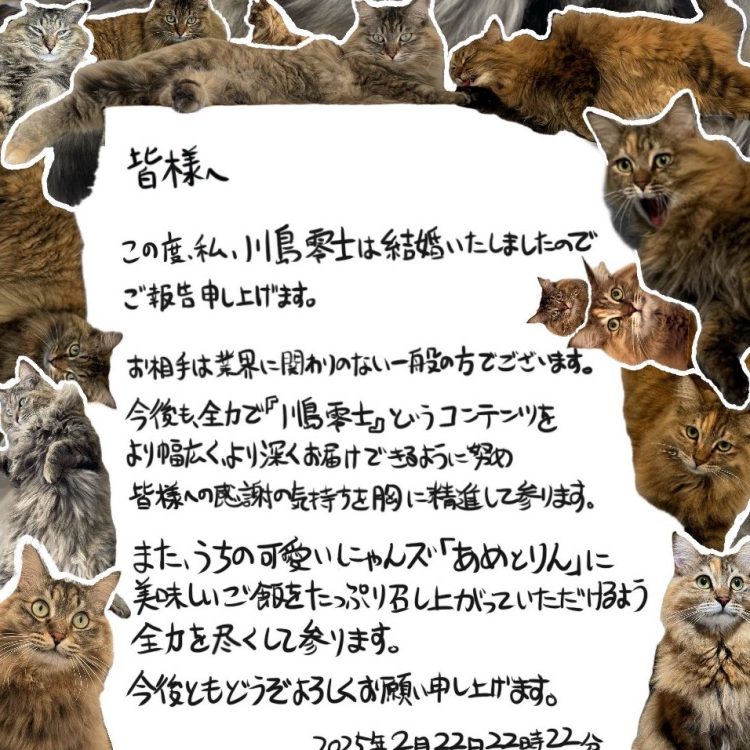 皆様へ
この度、私、川島零士は結婚いたしましたので
ご報告申し上げます。
お相手は業界に関わりのない一般の方でございます。
今後も、全力で『川島零士』というコンテンツを
より幅広く、より深くお届けできるように努め
皆様への感謝の気持ちを胸に精進して参ります。
また、うちの可愛いにゃんズ「あめとりん」に
美味しいご飯をたっぷり召し上がっていただけるよう
全力を尽くして参ります。
今後ともどうぞよろしくお願い申し上げます。
2025年2月22日22時22分